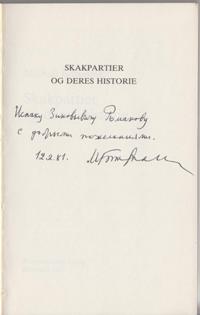 SKAKPARTIER
OG DERES HISTORIE
Исааку Зиновьевичу Романову
с добрыми пожеланиями.
12.2.81.